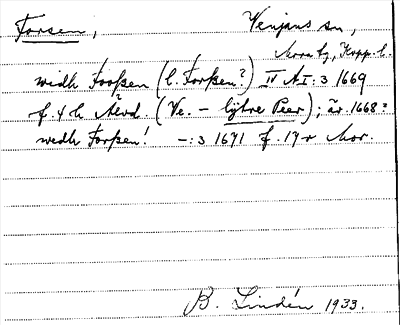 Forsen, Venjans sn,
Mora tg, Kopp. l.
widh Fooßen (l. Forßen?) IV A I: 3 1669
f. 4 h Alvd. (Ve. – lÿtre Peer); är. 1668?
wedh Forßen! –: 3 1671 f. 17 r Mor.
B. Lindén 1933.